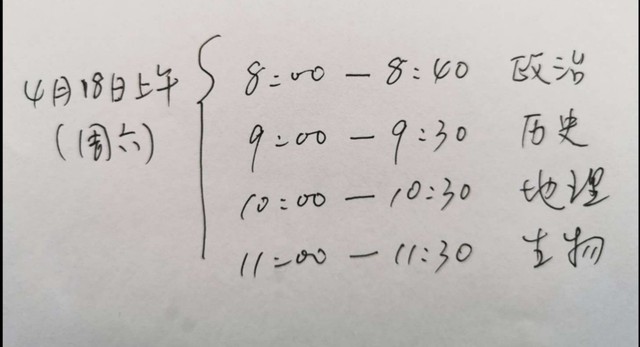 4月18日上午
(周六)
8:00 — 8:40 政治
9:00 — 9:30 历史
10:00 — 10:30 地理
11:00 — 11:30 生物